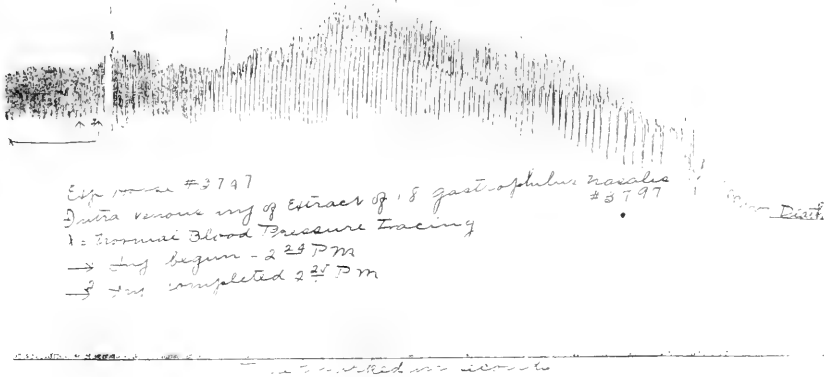 Exp horse #3797
Intra venous inj of Extract of 18 gastrophilus nasalis
#3797
= Normal Blood Pressure Tracing
→ inj begun - 2 24 PM
→ inj completed 2 25 PM
Death
marked in seconds